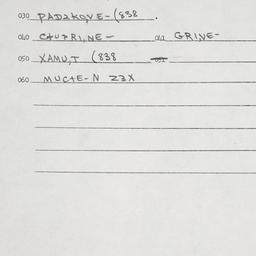 030 PADZKOVE-(838
040 C+UPRI,NE- 042 GRINE-
050 XAMU,T (838
060 MUC+E-N Z3X